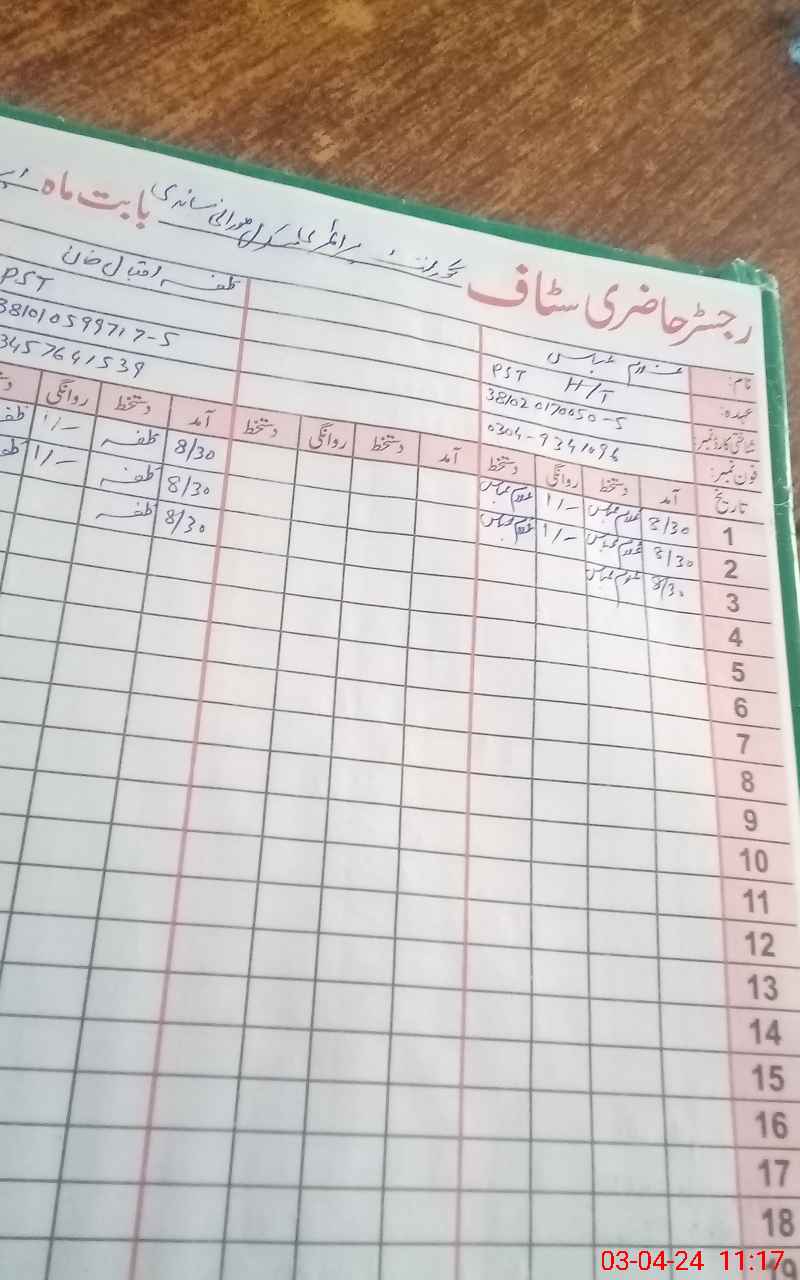 رجسٹر حاضری سٹاف گورنمنٹ پرائمری سکول بابت ماہ
نام: غلام عباس ظفر اقبال خان
عہدہ: PST H/T PST
شناختی کارڈ نمبر: 381020170050-5 381010599717-5
فون نمبر: 0304-9341096 3457641539
تاریخ آمد دستخط روانگی دستخط آمد دستخط روانگی دستخط آمد دستخط روانگی
1 8/30 غلام عباس 1/- غلام عباس 8/30 ظفر 1/- ظفر
2 8/30 غلام عباس 1/- غلام عباس 8/30 ظفر 1/- ظفر
3 8/30 غلام عباس 8/30 ظفر
4
5
6
7
8
9
10
11
12
13
14
15
16
17
18
19
03-04-24 11:17